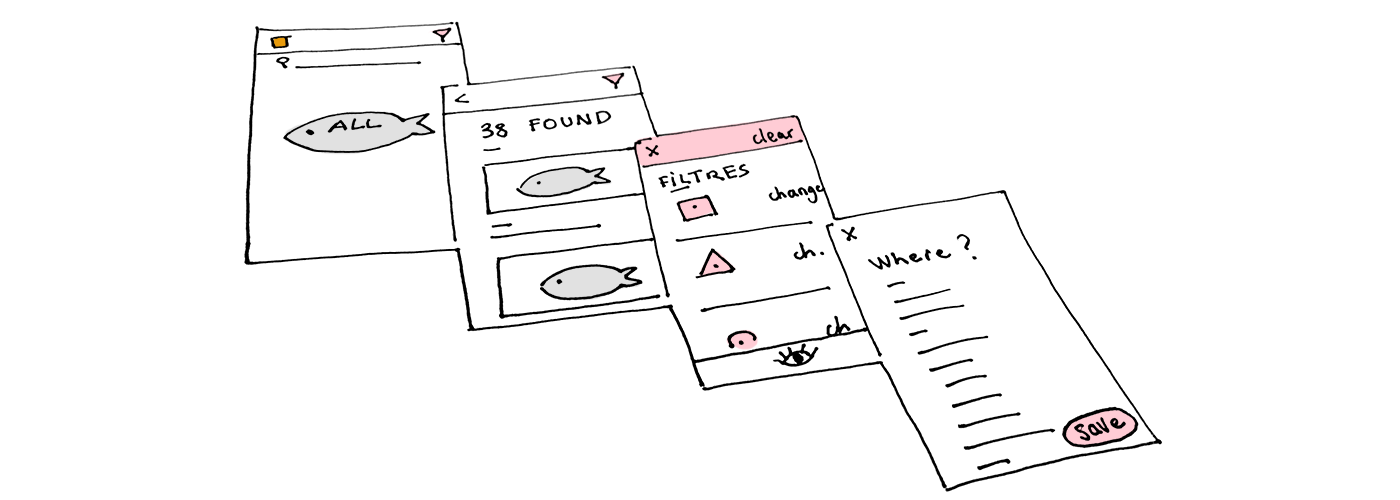 ALL
38 FOUND
clear
FiLTRES
change
ch.
ch
where ?
save